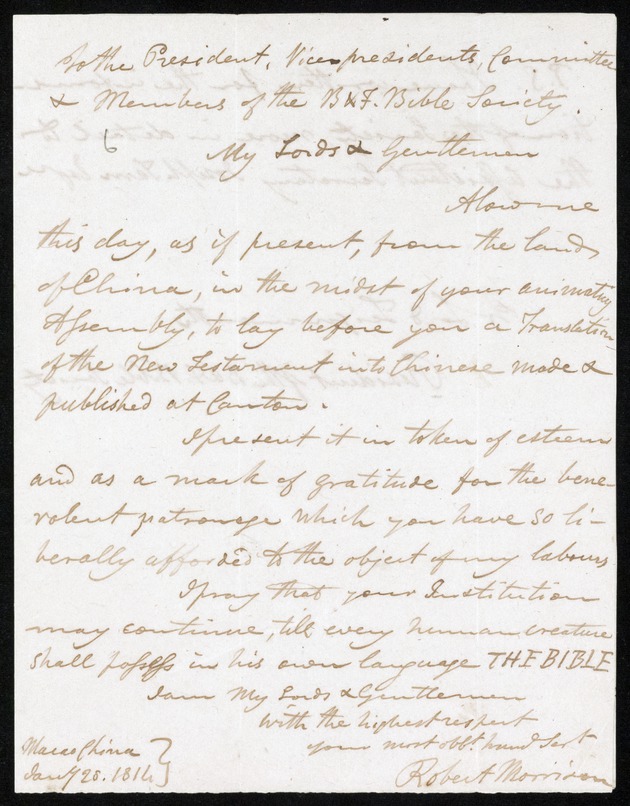 To the President, Vice presidents, Committee
& Members of the B & F. Bible Society.
6
My Lords & Gentlemen
Alow me
this day, as if present, from the land
of China, in the midst of your animating
Assembly, to lay before you a Translation
of the New Testament into Chinese made &
published at Canton.
I present it in token of esteem
and as a mark of gratitude for the bene-
volent patronage which you have so li-
berally afforded to the object of my labours
I pray that your Institution
may continue, till every human creature
shall possess in his own language THE BIBLE
I am My Lords & Gentlemen
with the highest respect
your most obt. humb Sert
Macao China
Jany 28. 1814
Robert Morrison